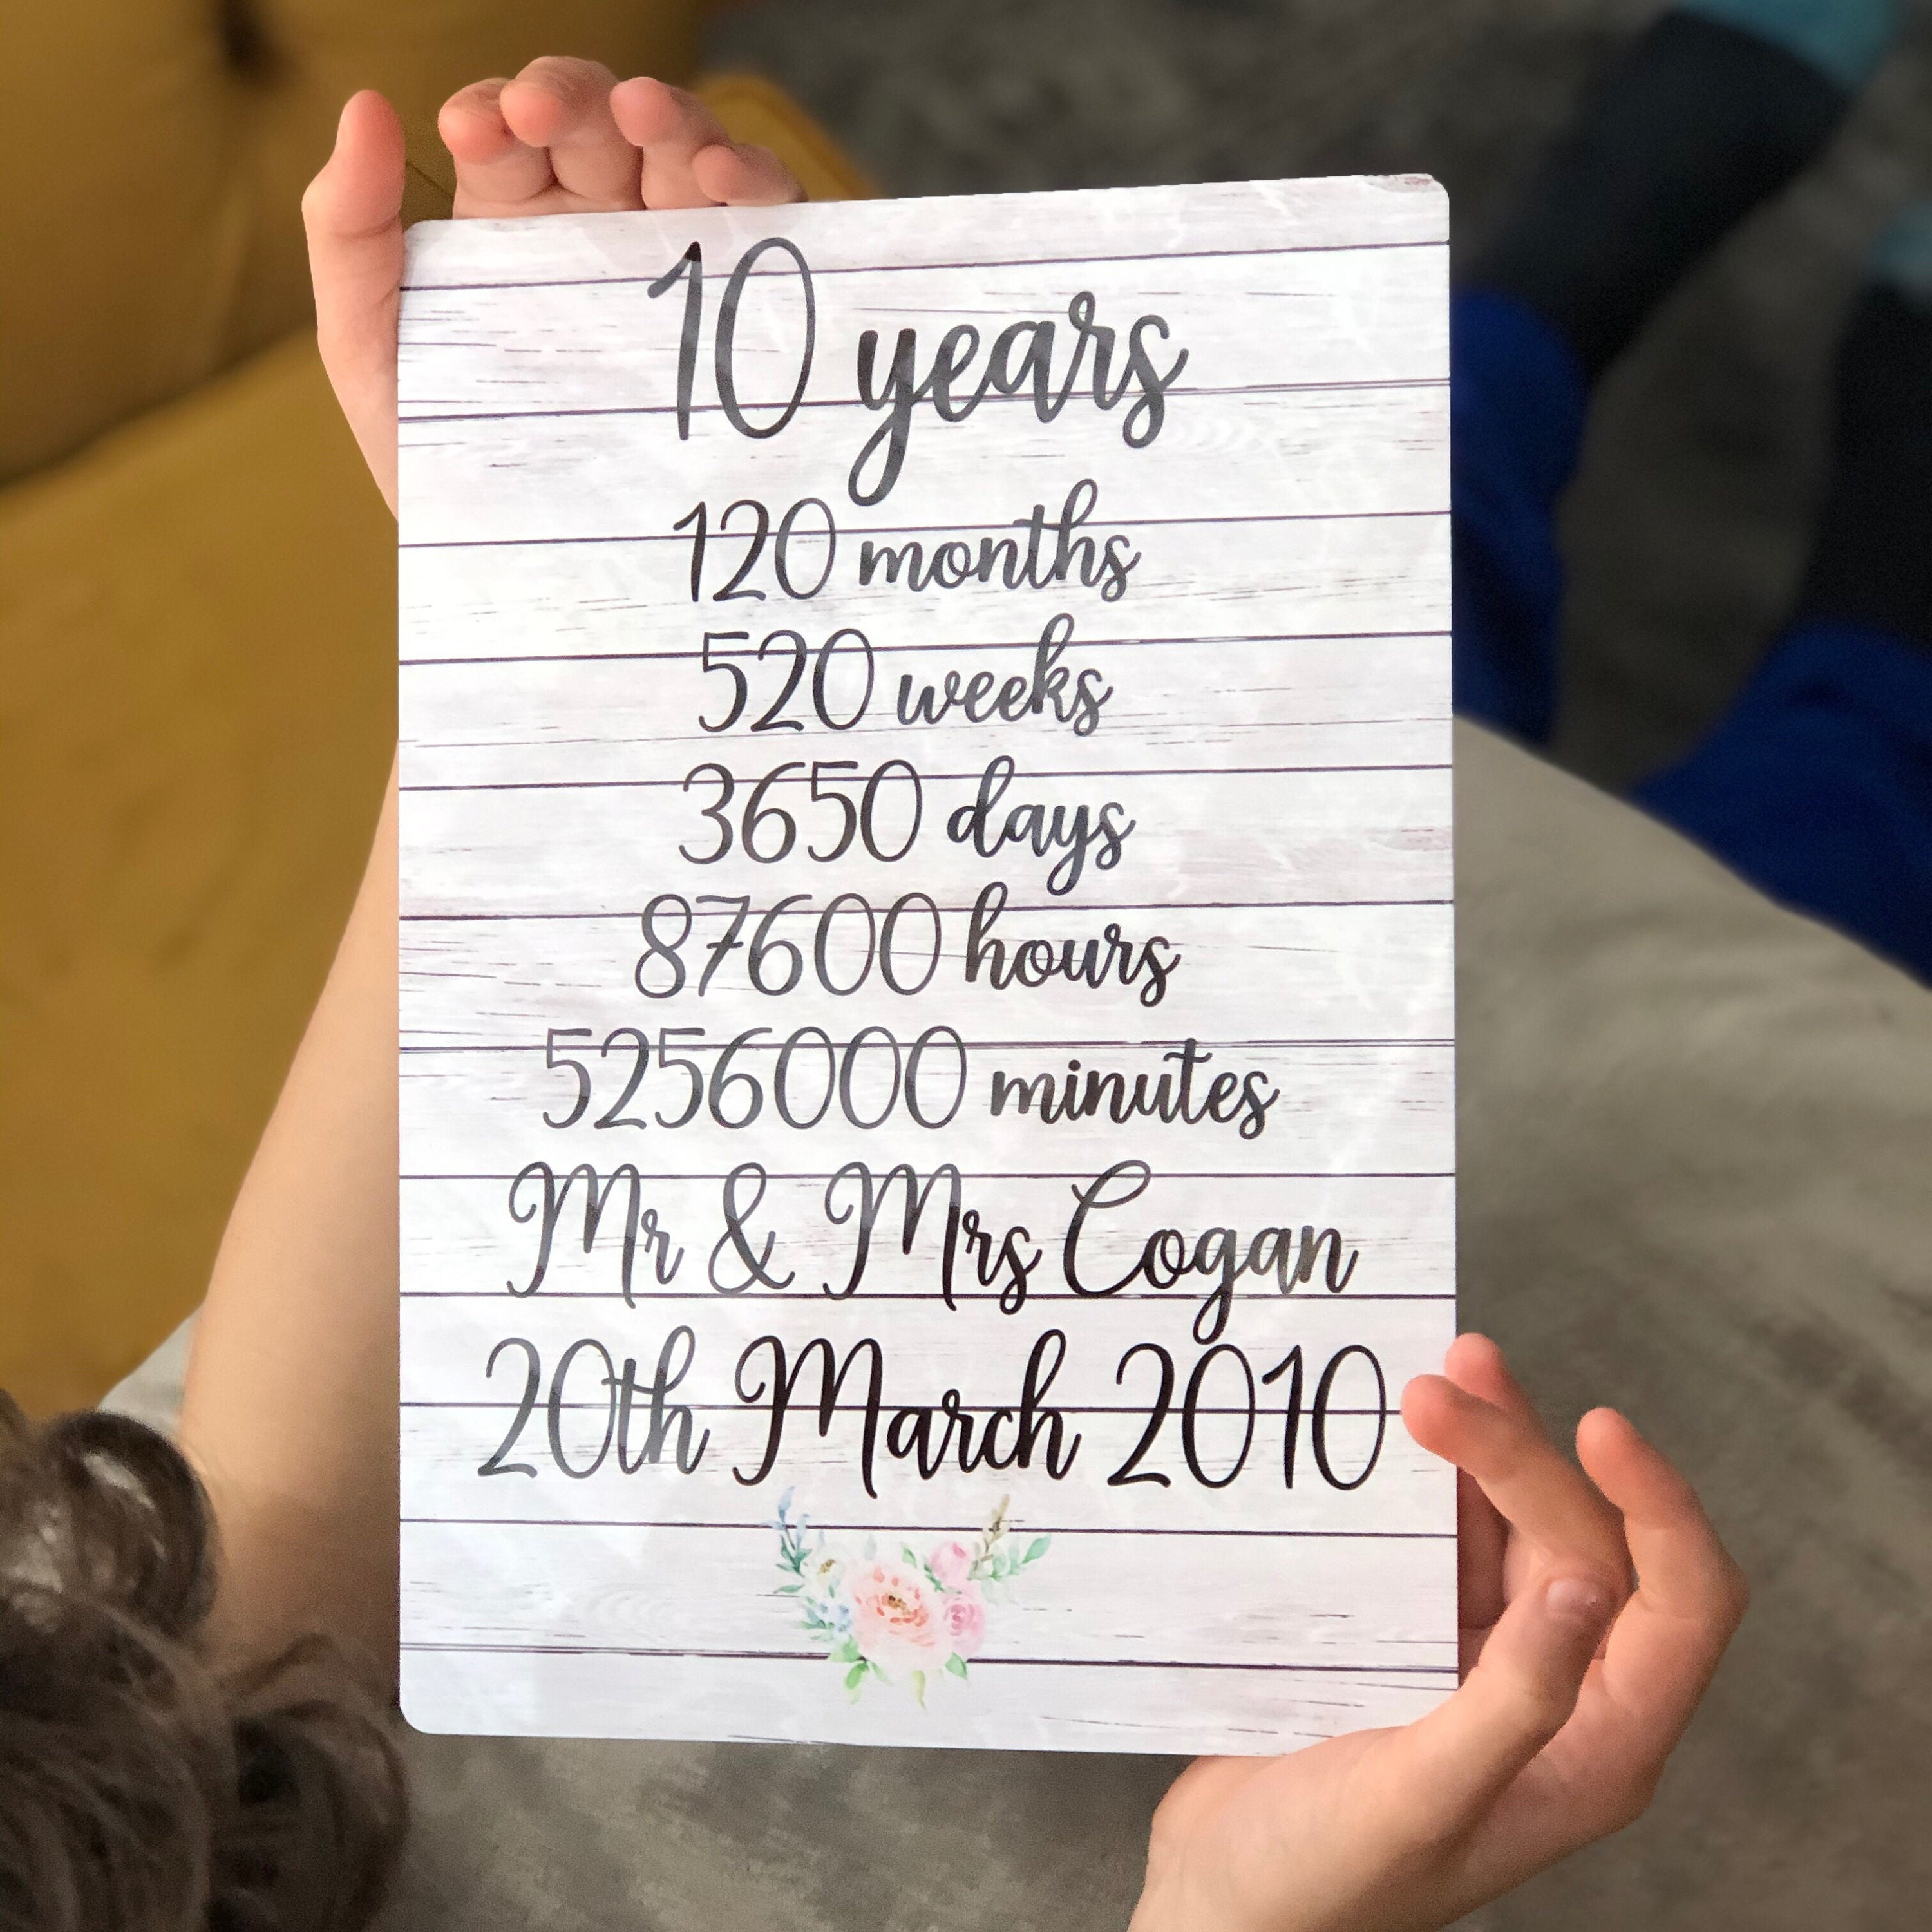 10 years
120 months
520 weeks
3650 days
87600 hours
5256000 minutes
Mr & Mrs Cogan
20th March 2010